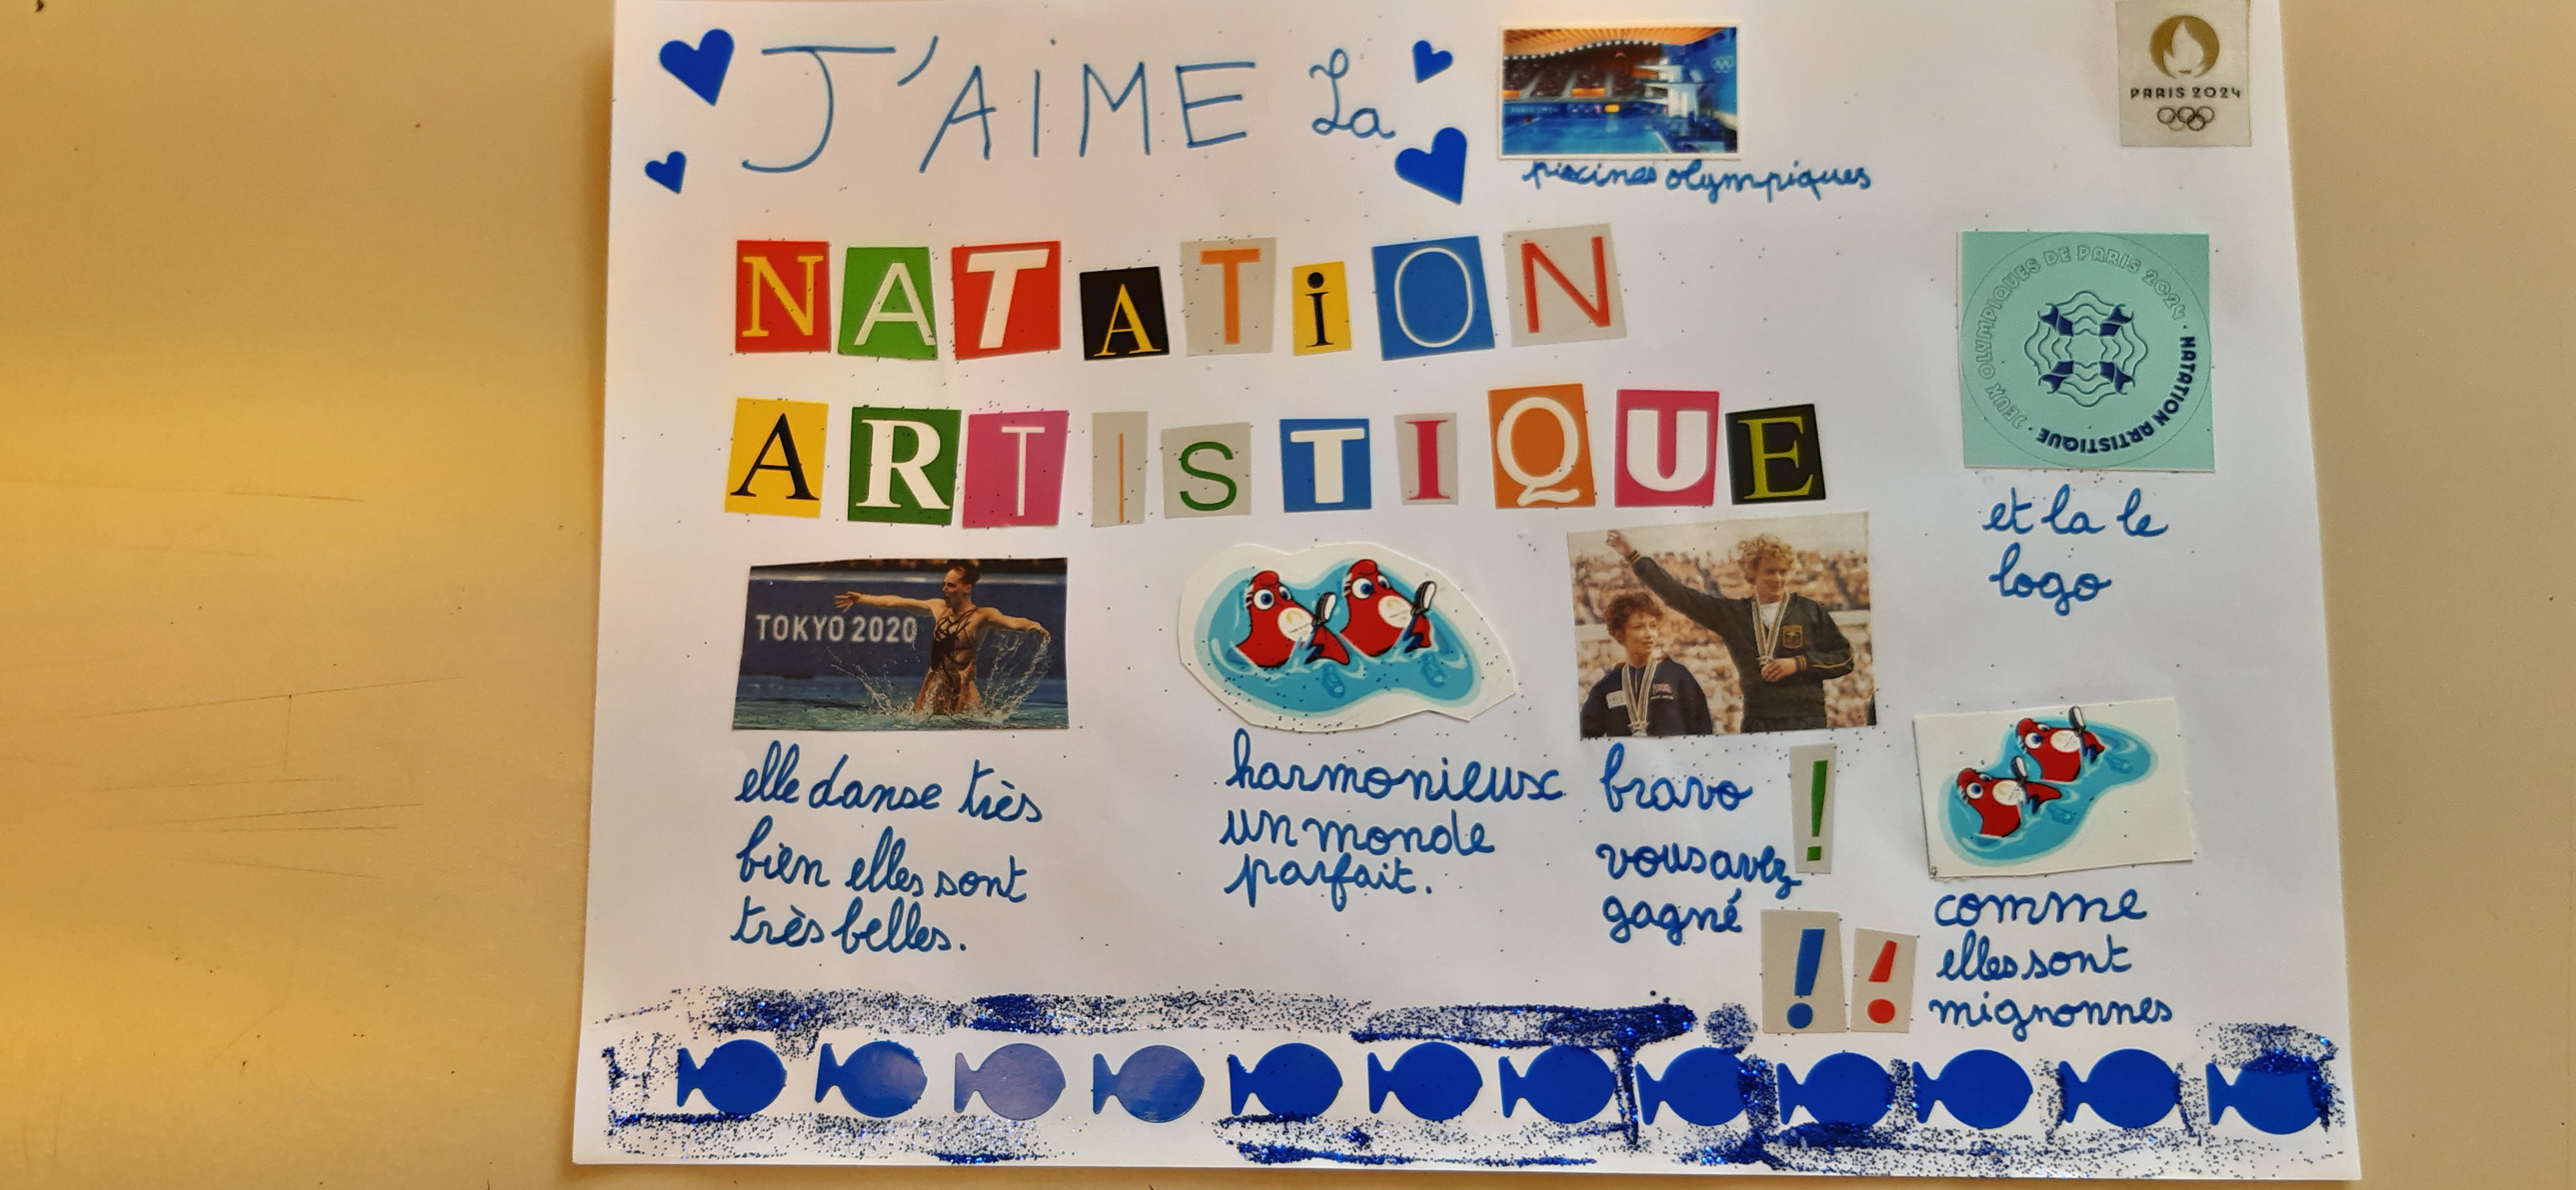 J'AIME La
piscines olympiques
PARIS 2024
NATATION
ARTISTIQUE
JEUX OLYMPIQUES DE PARIS 2024 · NATATION ARTISTIQUE ·
et la le
logo
TOKYO 2020
elle danse très
bien elles sont
très belles.
harmonieux
un monde
parfait.
bravo !
vous avez
gagné
! !
comme
elles sont
mignonnes